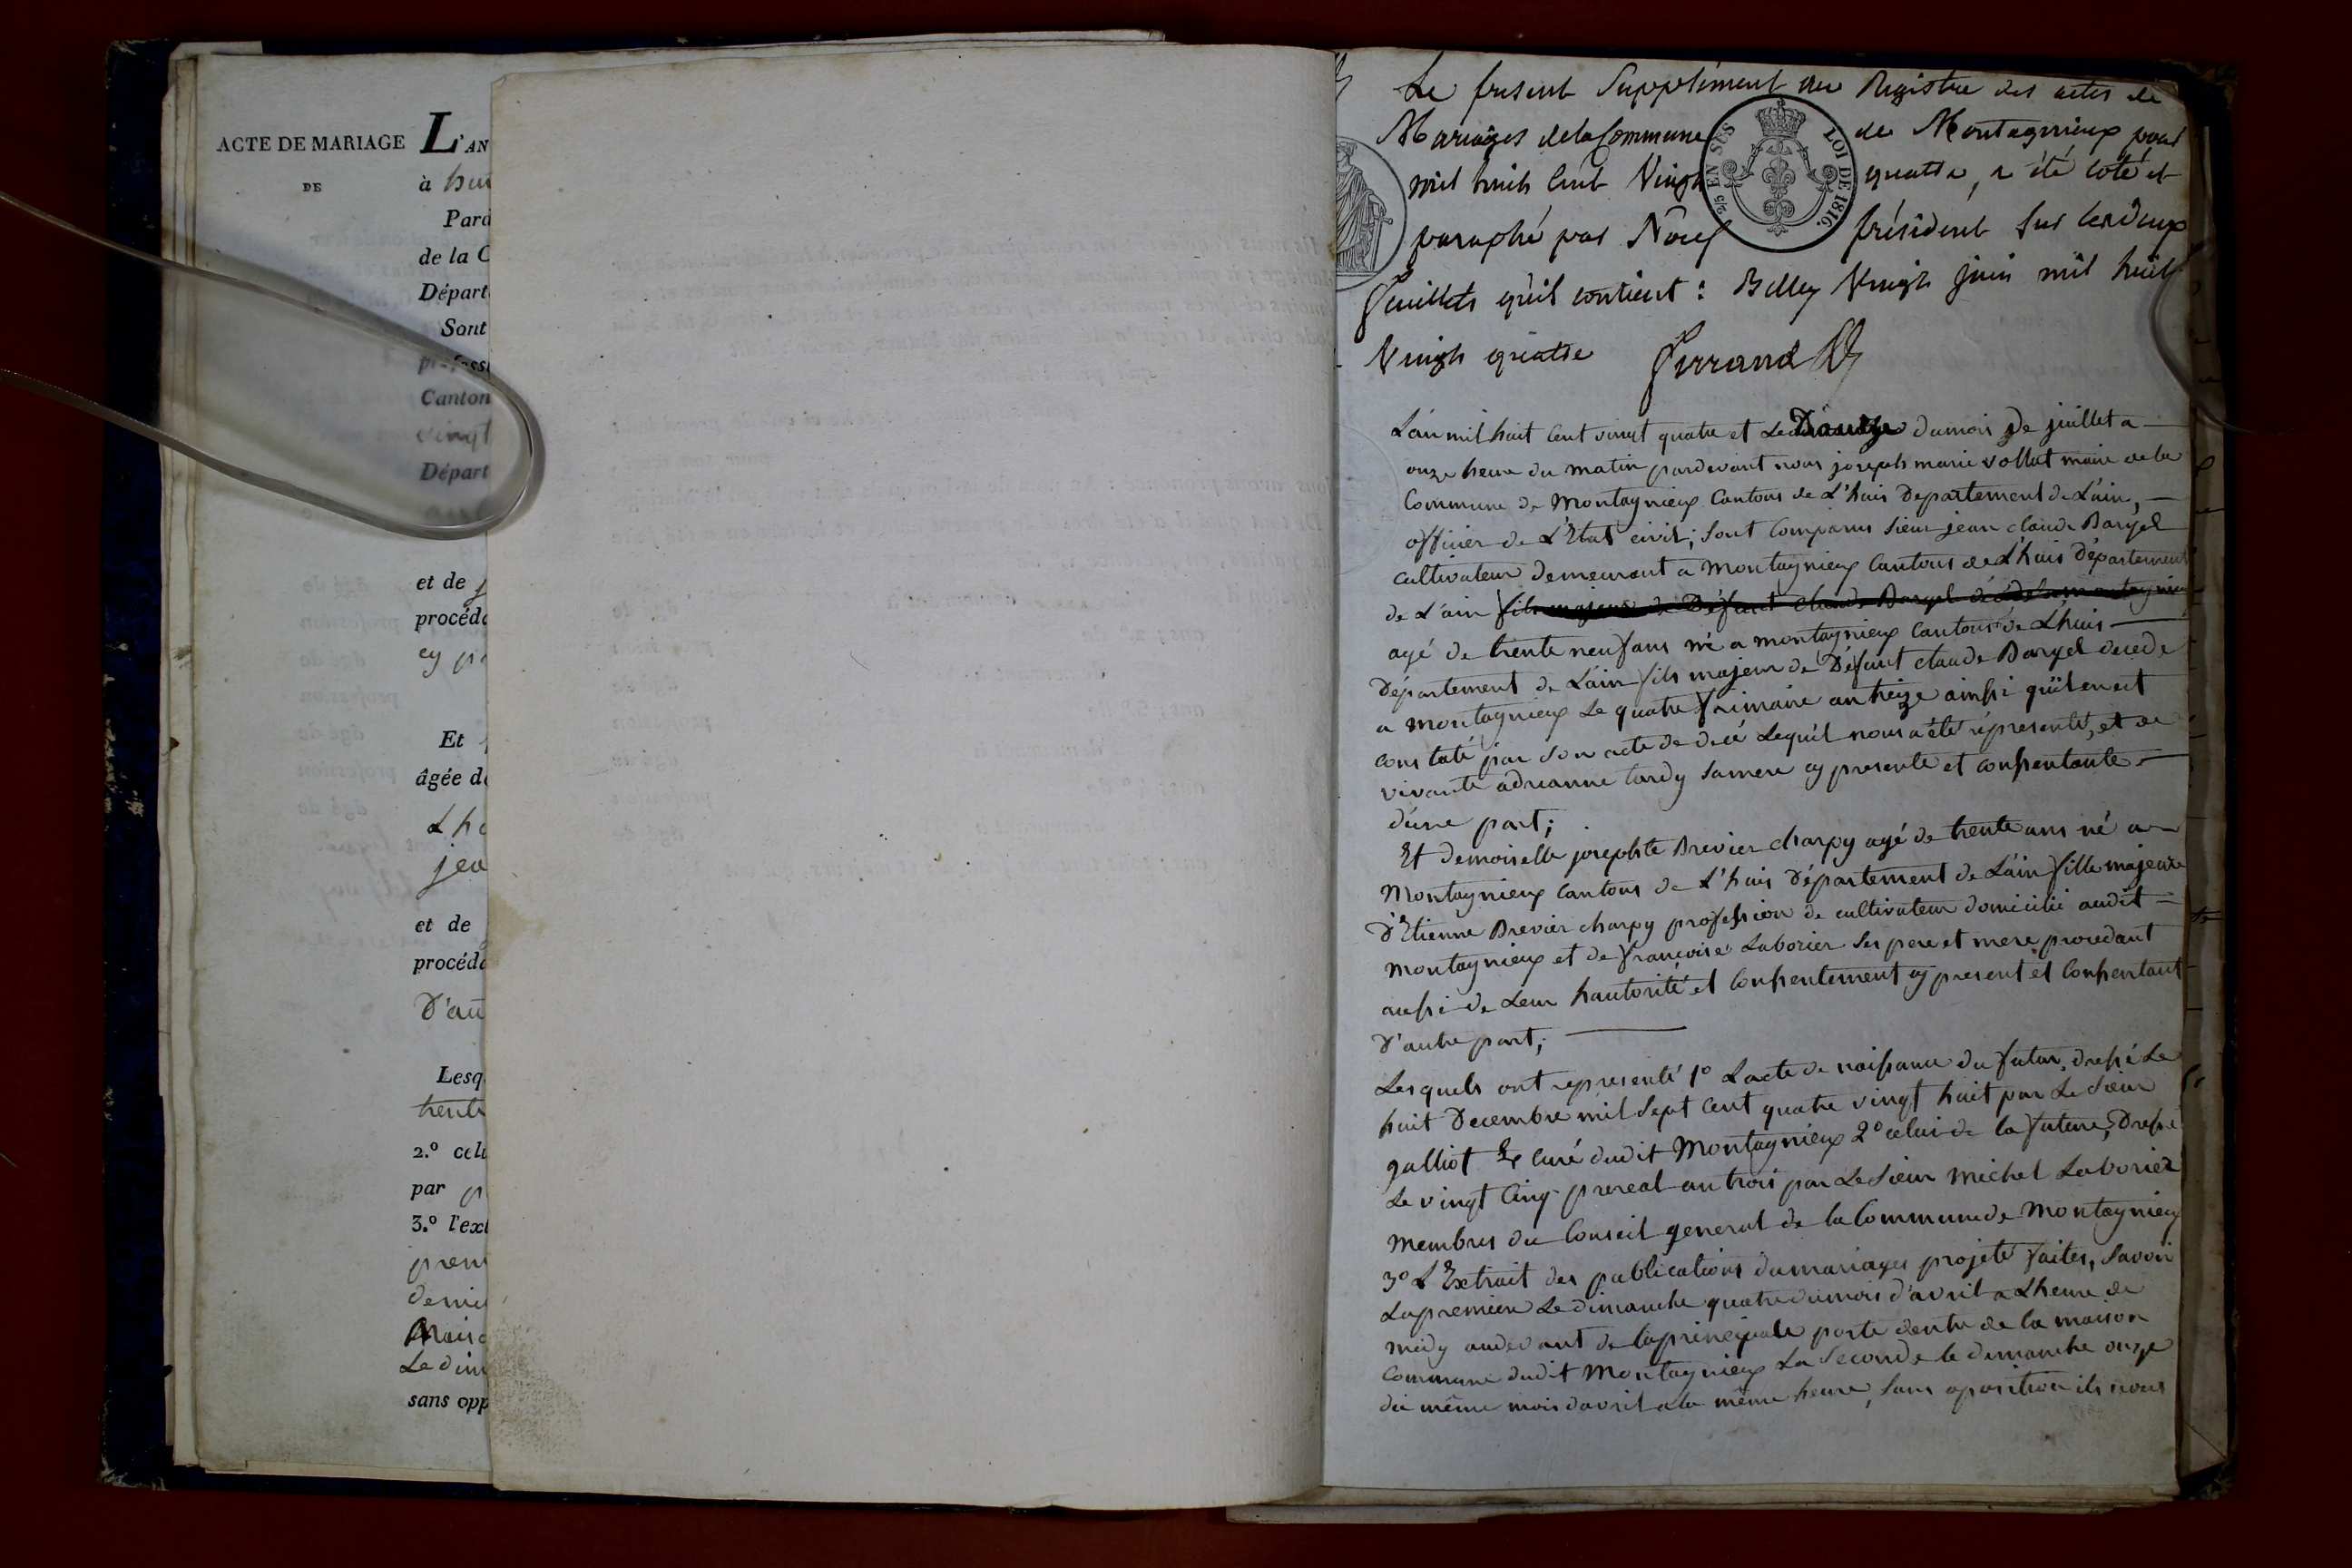 ACTE DE MARIAGE
DE
L'AN
à hui
Pard
de la C
Départ
Sont
professi
Canton
vingt
Départ
et de
procéda
cy
Et
âgée de
Lh
jea
et de
procéda
D'au
Lesq
trent
2.º celu
par
3.º l'ext
prem
dernie
Mais
Le dim
sans opp
Le present Supplément au Registre des actes de
Mariages de la Commune de Montagnieux pour
mil huit Cent Vingt quatre, a été coté et
paraphé par Nous président Sur les deux
feuillets qu'il contient : Belley Vingt juin mil huit
Vingt quatre Ferrand
EN SUS
LOI DE 1816.
L'an mil huit Cent vingt quatre et Le Douze du mois de juillet a
onze heure du matin pardevant nous joseph marie vollat maire de la
Commune de Montagnieux Cantons de L'huis Departement de L'ain,
officier de L'Etat civil; sont Comparus Sieur jean claude Bargel
cultivateur demeurant a Montagnieux Cantons de L'huis Département
de L'ain fils majeur de Défunt claude Bargel
agé de trente neuf ans né a montagnieux Cantons de Lhuis
Département de L'ain fils majeur de Défunt claude Bargel decede
a montagnieux Le quatre frimaire an treize ainsi qu'il en est
constaté par son acte de décé Lequel nous a été représenté, et de
vivante adrianne tardy sa mere cy presente et consentante
d'une part;
Et demoiselle josephte Brevier charpy agé de trente ans né a
Montagnieux Cantons de L'huis Département de L'ain fille majeure
D'Etienne Brevier charpy profession de cultivateur domicilié audit
montagnieux et de françoise Laborier ses pere et mere procedant
aussi de Leur hautorité et consentement cy present et Consentant
D'autre part;
Lesquels ont representé 1º L'acte de naissance du futur, dressé Le
huit Decembre mil sept Cent quatre vingt huit par Le Sieur
galliot Ex curé dudit Montagnieux 2º celui de la future, Dressé
Le vingt Cinq prereal an trois par Le Sieur Michel Laborier
membres du Conseil general de la Commune de Montagnieux
3º L'Extrait des publications du mariages projeté faites, Savoir
La premiere Le dimanche quatre du mois d'avril a Lheure de
midy au devant de la principale porte dentre de la maison
Commune dudit Montagnieux La Seconde le dimanche onze
du même mois d'avril a la même heure, Sans oposition ils nous